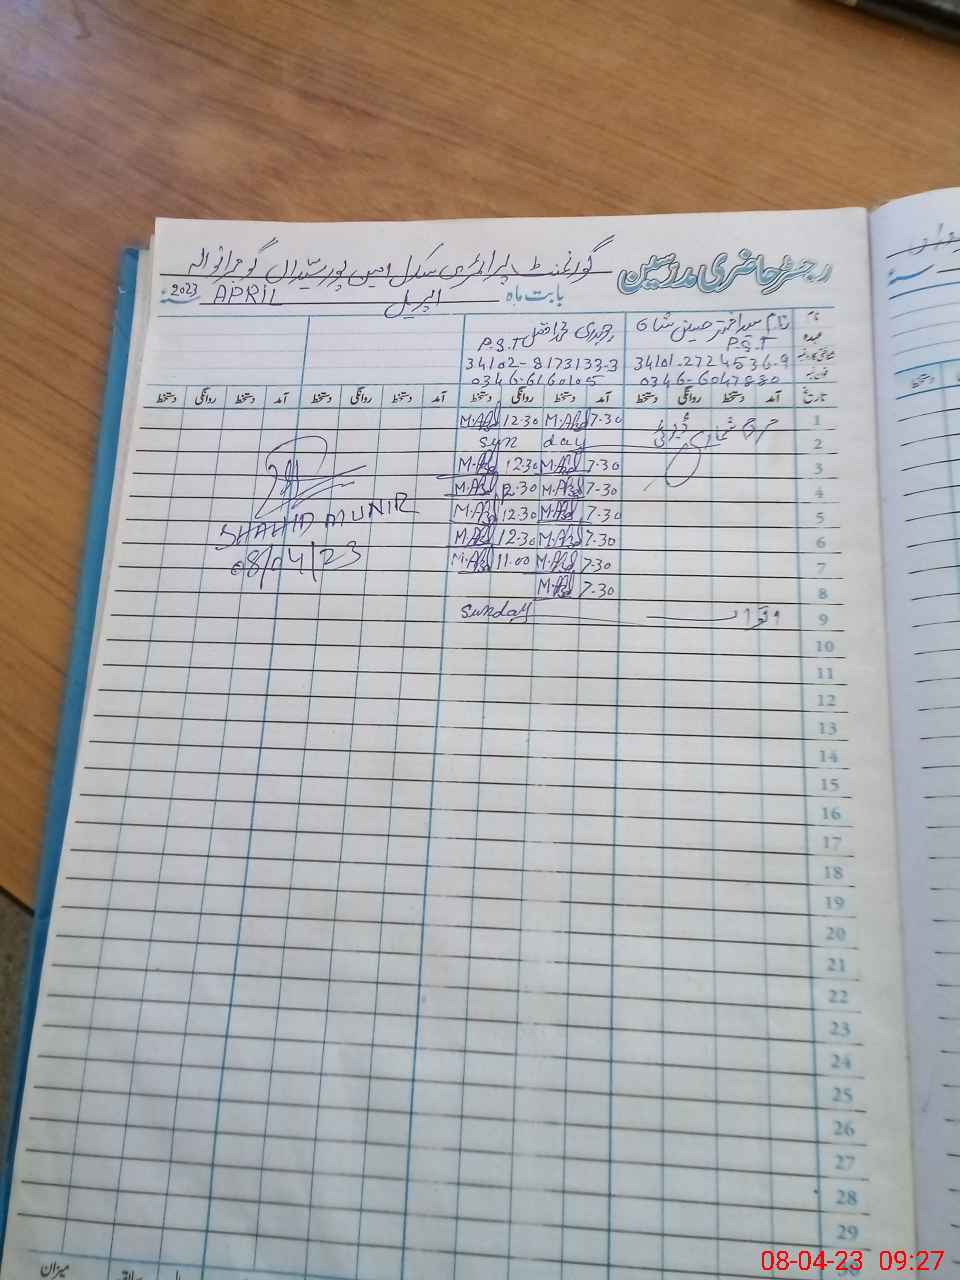 رجسٹر حاضری مدرسین گورنمنٹ پرائمری سکول امین پور سیداں گوجرانوالہ
بابت ماہ اپریل APRIL 2023 سنہ
نام سید اختر حسین شاہ چوہدری محمد افضل
عہدہ P.S.T P.S.T
34101-2724536-9 34102-8173133-3
0346-6047880 0346-6160105
تاریخ آمد دستخط روانگی دستخط آمد دستخط روانگی دستخط آمد دستخط روانگی دستخط آمد دستخط روانگی دستخط
1 مردم شماری ڈیوٹی 7.30 M.Afzal 12.30 M.Afzal
2 Sun day
3 7-30 M.Afzal 12.30 M.Afzal
4 7-30 M.Afzal 12.30 M.Afzal
5 7-30 M.Afzal 12.30 M.Afzal
6 7-30 M.Afzal 12.30 M.Afzal
7 7-30 M.Afzal 11.00 M.Afzal
8 7-30 M.Afzal
9 اتوار Sunday
SHAHID MUNIR
08/04/23
10
11
12
13
14
15
16
17
18
19
20
21
22
23
24
25
26
27
28
29
30
میزان
08-04-23 09:27